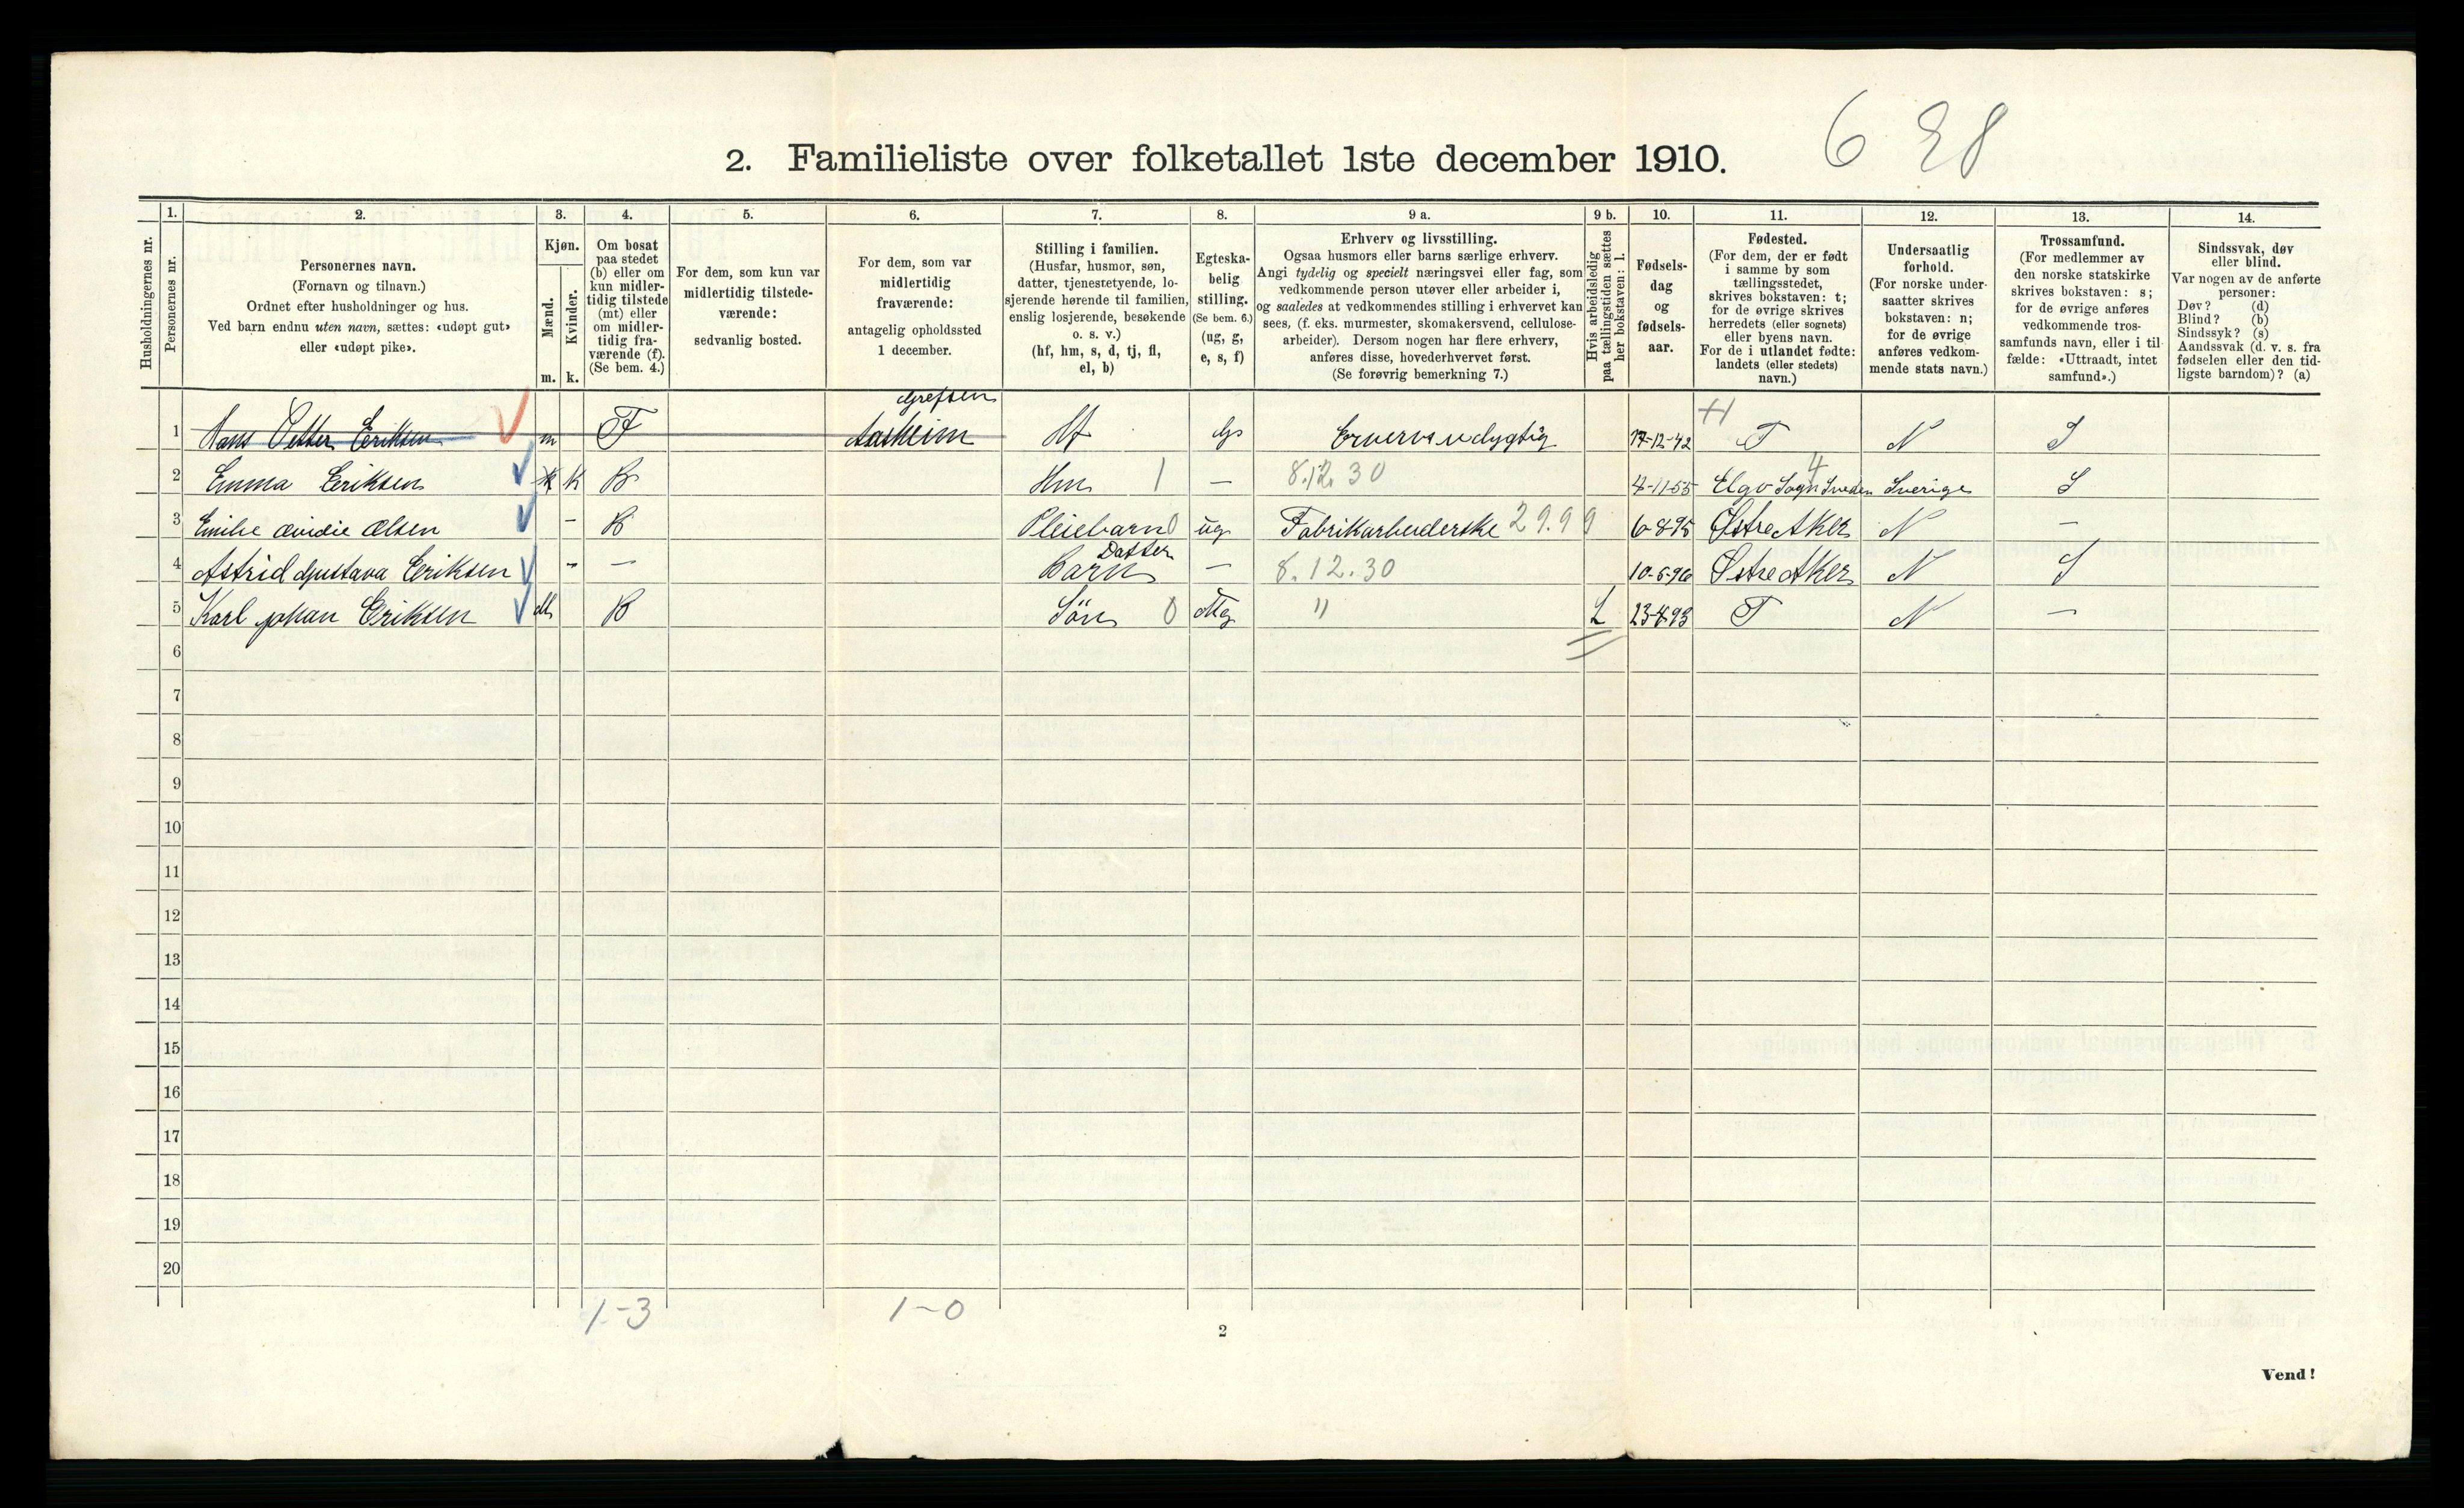 6 28
2. Familieliste over folketallet 1ste december 1910.
Husholdningernes nr.
1. Personernes nr.
2. Personernes navn.
(Fornavn og tilnavn.)
Ordnet efter husholdninger og hus.
Ved barn endnu uten navn, sættes: «udøpt gut»
eller «udøpt pike».
3. Kjøn.
Mænd. Kvinder.
m. k.
4. Om bosat
paa stedet
(b) eller om
kun midler-
tidig tilstede
(mt) eller
om midler-
tidig fra-
værende (f).
(Se bem. 4.)
5. For dem, som kun var
midlertidig tilstede-
værende:
sedvanlig bosted.
6. For dem, som var
midlertidig
fraværende:
antagelig opholdssted
1 december.
7. Stilling i familien.
(Husfar, husmor, søn,
datter, tjenestetyende, lo-
sjerende hørende til familien,
enslig losjerende, besøkende
o. s. v.)
(hf, hm, s, d, tj, fl,
el, b)
8. Egteska-
belig
stilling.
(Se bem. 6.)
(ug, g,
e, s, f)
9 a. Erhverv og livsstilling.
Ogsaa husmors eller barns særlige erhverv.
Angi tydelig og specielt næringsvei eller fag, som
vedkommende person utøver eller arbeider i,
og saaledes at vedkommendes stilling i erhvervet kan
sees, (f. eks. murmester, skomakersvend, cellulose-
arbeider). Dersom nogen har flere erhverv,
anføres disse, hovederhvervet først.
(Se forøvrig bemerkning 7.)
9 b. Hvis arbeidsledig
paa tællingstiden sættes
her bokstaven: l.
10. Fødsels-
dag
og
fødsels-
aar.
11. Fødested.
(For dem, der er født
i samme by som
tællingsstedet,
skrives bokstaven: t;
for de øvrige skrives
herredets (eller sognets)
eller byens navn.
For de i utlandet fødte:
landets (eller stedets)
navn.)
12. Undersaatlig
forhold.
(For norske under-
saatter skrives
bokstaven: n;
for de øvrige
anføres vedkom-
mende stats navn.)
13. Trossamfund.
(For medlemmer av
den norske statskirke
skrives bokstaven: s;
for de øvrige anføres
vedkommende tros-
samfunds navn, eller i til-
fælde: «Uttraadt, intet
samfund».)
14. Sindssvak, døv
eller blind.
Var nogen av de anførte
personer:
Døv? (d)
Blind? (b)
Sindssyk? (s)
Aandssvak (d. v. s. fra
fødselen eller den tid-
ligste barndom)? (a)
Grefsen
1 Hans Petter Eriksen m F Aasheim Hf G Ervervsudygtig 17-12-42 T N S
2 Emma Eriksen K B Hm 1 — 8.12.30 4-11-55 Elgo Sogn Sveden 4 Sverige S
3 Emilie Olsen - B Pleiebarn 0 ug Fabrikarbeiderske 29.99 6-8-95 Østre Aker N —
Datter
4 Astrid Gustava Eriksen - — Barn — 8.12.30 10-5-96 Østre Aker N S
5 Karl Johan Eriksen M B Søn 0 " L 23-8-93 T N —
6
7
8
9
10
11
12
13
14
15
16
17
18
19
20
1-3 1-0
2
Vend!